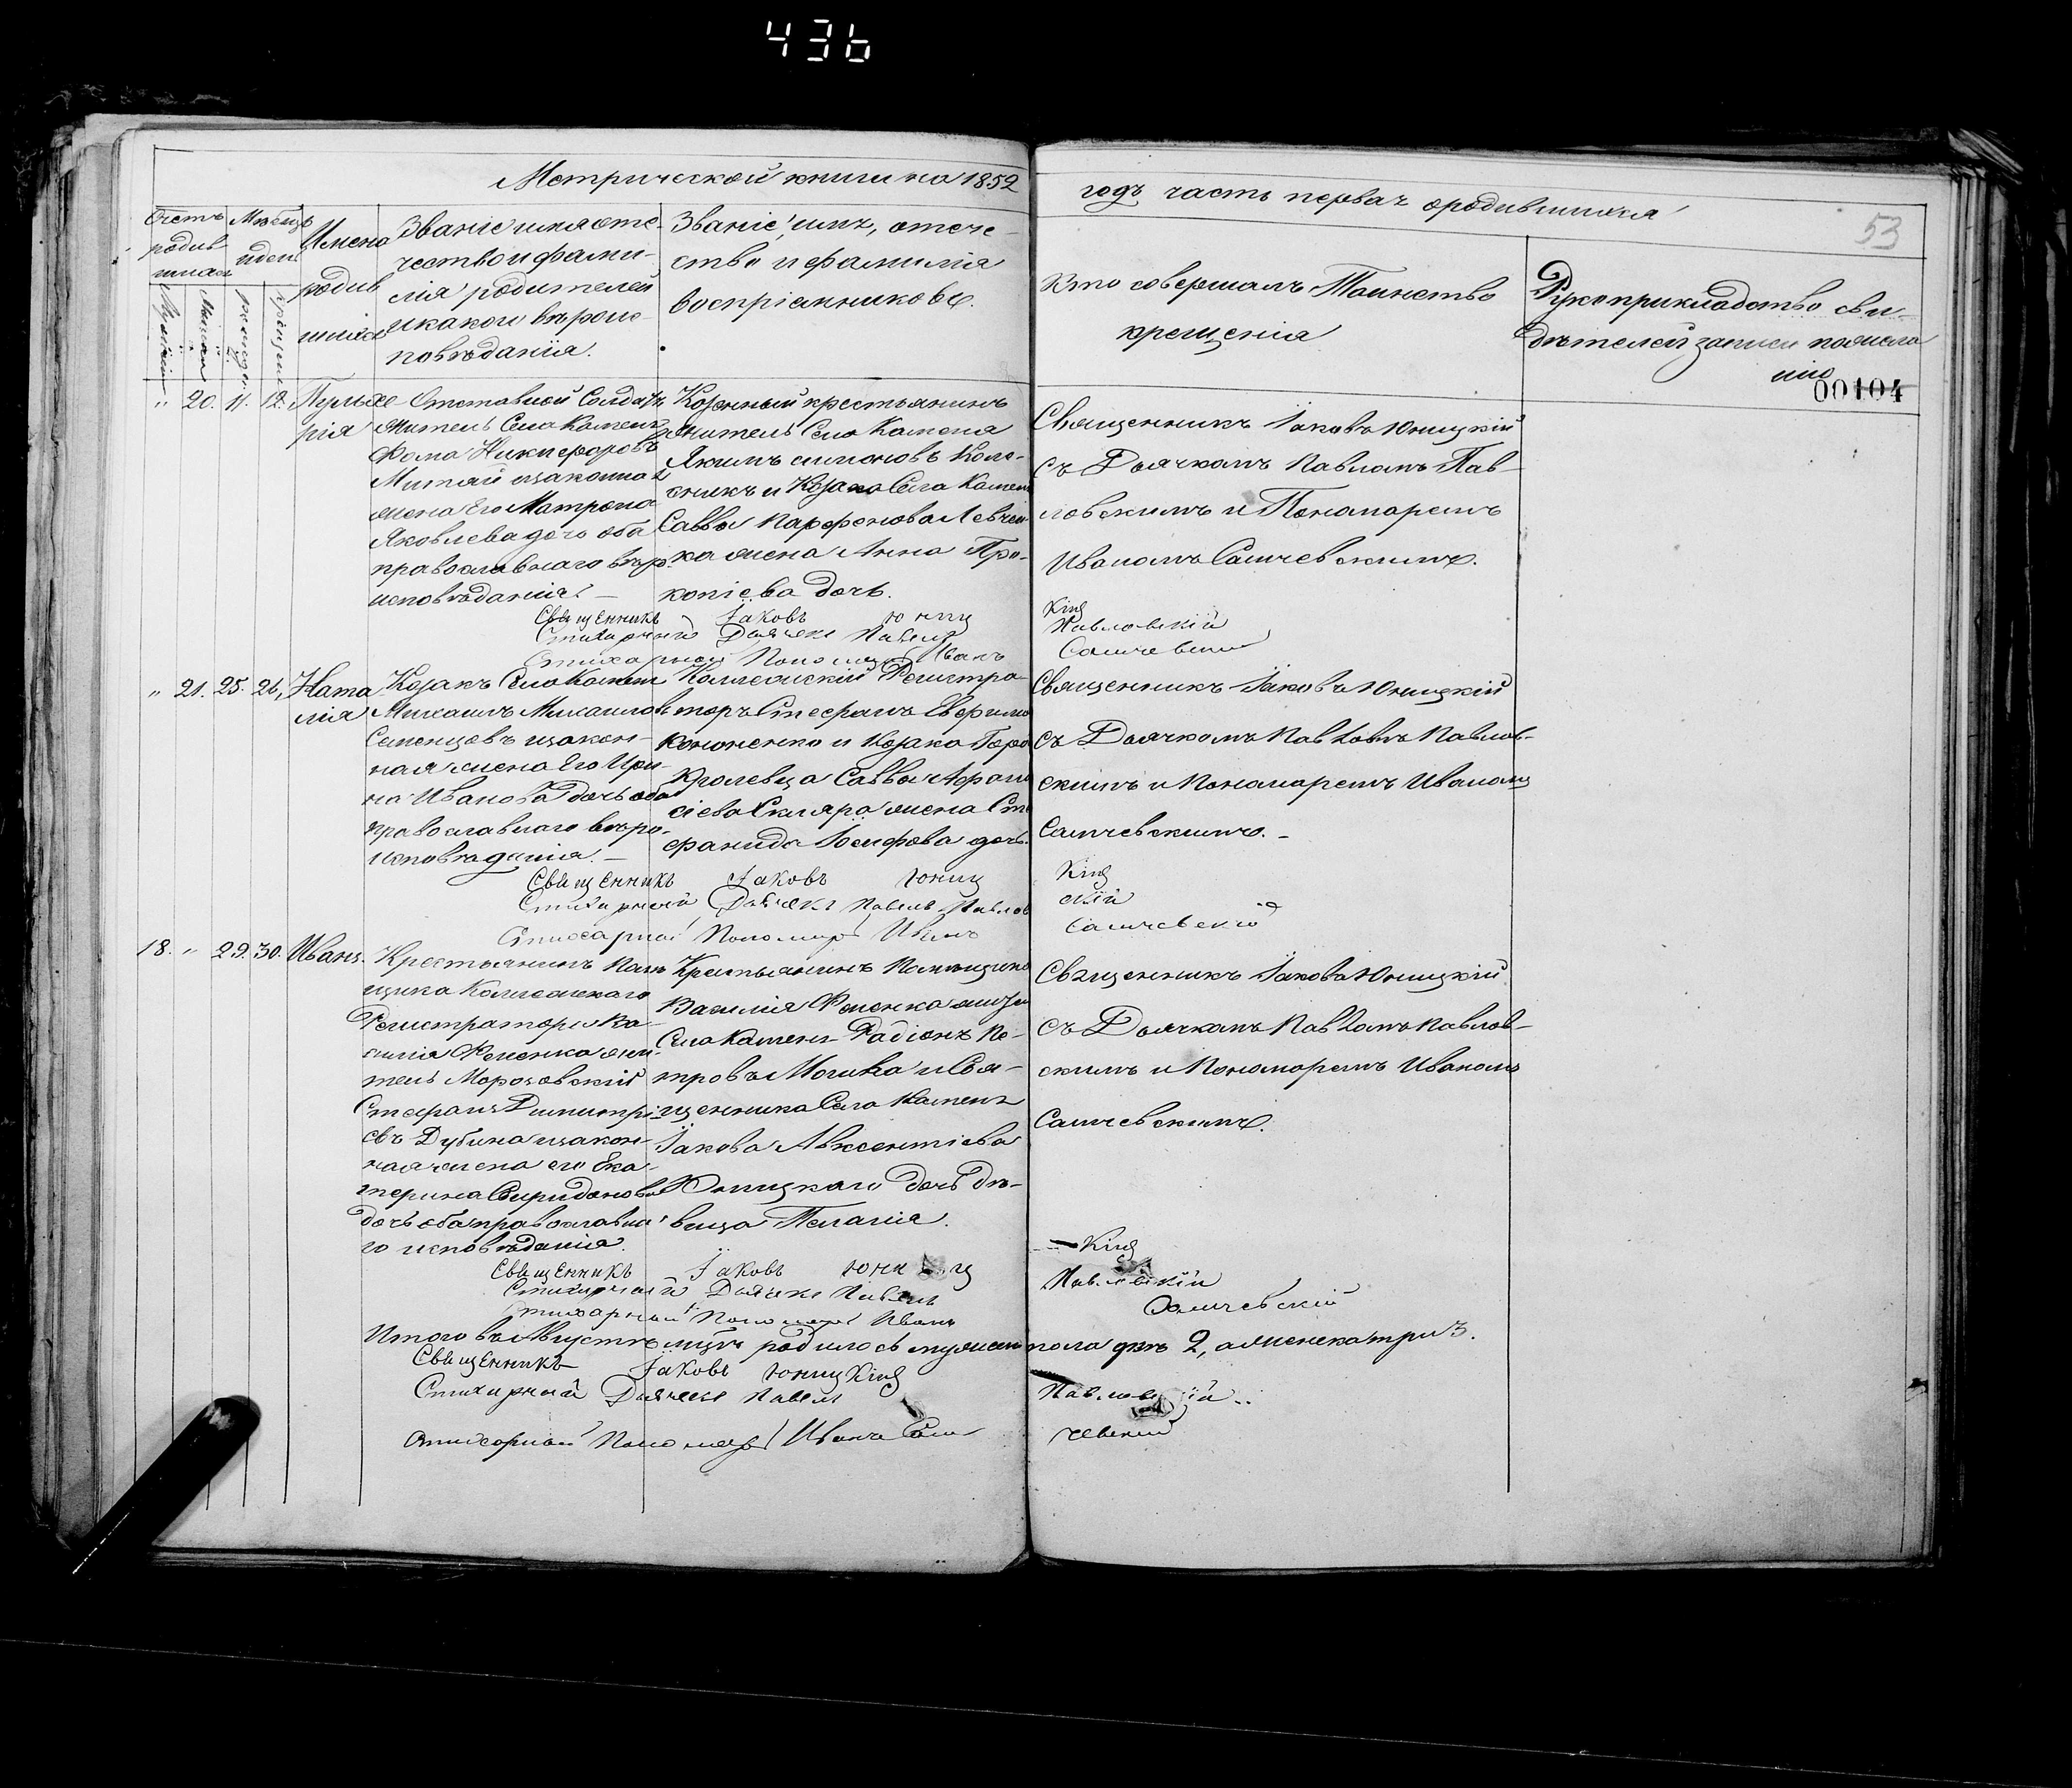 436
Метрической книги на 1852
годъ часть первая о родившихся
53
Счетъ родив шихся
Мѣсяцъ и день
Имена родив шихся
Званіе имя оте-
чество и фами-
лія родителей
и какого вѣроис-
повѣданія.
Званіе, имя, отече-
ство и фамилія
воспріемниковъ.
Кто совершалъ Таинство
крещенія
Рукоприкладство сви-
дѣтелей записи по жела
нію
00104
" 20. 11. 12. Пульхе
рія
Отставной Солдатъ
житель Села Камень
Фома Никифоровъ
законная
жена Его Матрона
Яковлева дочь оба
православнаго вѣро
исповѣданія
Козенный крестьянинъ
житель Села Каменя
Якимъ симоновъ Коле-
сникъ и Козака Села Камень
Саввы Парфенова Левчен
ка жена Анна Про-
копіева дочь.
Священникъ Іаковъ Юницкій
съ Дьячкомъ Павломъ Пав
ловскимъ и Пономаремъ
Иваномъ Самчевскимъ.
Священникъ Іаковъ Юницкій
Стихарный Дьячекъ Павелъ Павловскій
Стихарный Пономарь Иванъ Самчевскій
" 21. 25. 26. Ната
лія
Козакъ Села Камень
Михаилъ Михаиловъ
Семенцовъ и закон-
ная жена Его Ири-
на Иванова дочь оба
православнаго вѣро-
исповѣданія.
Коллежскій Регистра-
торъ Стефанъ Евфимо
Кононенко и Козака Горо
Кролевца Саввы Афана
сіева Скляра жена Сте
фанида Іосифова дочь.
Священникъ Іаковъ Юницкій
съ Дьячкомъ Павломъ Павлов-
скимъ и Пономаремъ Иваномъ
Самчевскимъ.
Священникъ Іаковъ Юницкій
Стихарный Дьячекъ Павелъ Павловскій
Стихарный Пономарь Иванъ Самчевскій
18. " 29. 30. Иванъ.
Крестьянинъ Помѣ
щика Коллежскаго
Регистратора Ва-
силія Фененка жи-
тель Морозовскій
Стефанъ Димитрі-
евъ Дубина и закон-
ная жена его Ека-
терина Свиридонова
дочь оба православна
го исповѣданія.
Крестьянинъ Помѣщика
Василія Фененка жит
Села Камень Радіонъ Пе-
тровъ Могила и Свя-
щенника Села Камень
Іакова Авксентіева
Юницкаго дочь дѣ-
вица Пелагія.
Священникъ Іаковъ Юницкій
съ Дьячкомъ Павломъ Павлов-
скимъ и Пономаремъ Иваномъ
Самчевскимъ.
Священникъ Іаковъ Юницкій
Стихарный Дьячекъ Павелъ Павловскій
Стихарный Пономарь Иванъ Самчевскій
Итого въ Августѣ мцѣ родилось мужеска пола двѣ 2, а женска три 3.
Священникъ Іаковъ Юницкій
Стихарный Дьячекъ Павелъ Павловскій
Стихарный Пономарь Иванъ Самчевскій